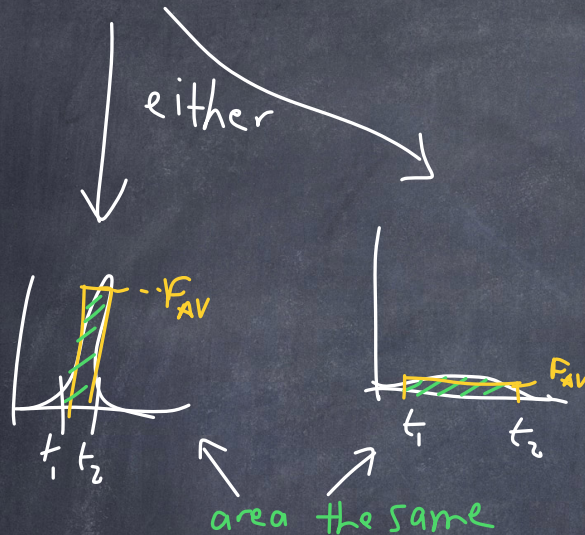 either
F_AV
F_AV
t_1 t_2
t_1 t_2
area the same